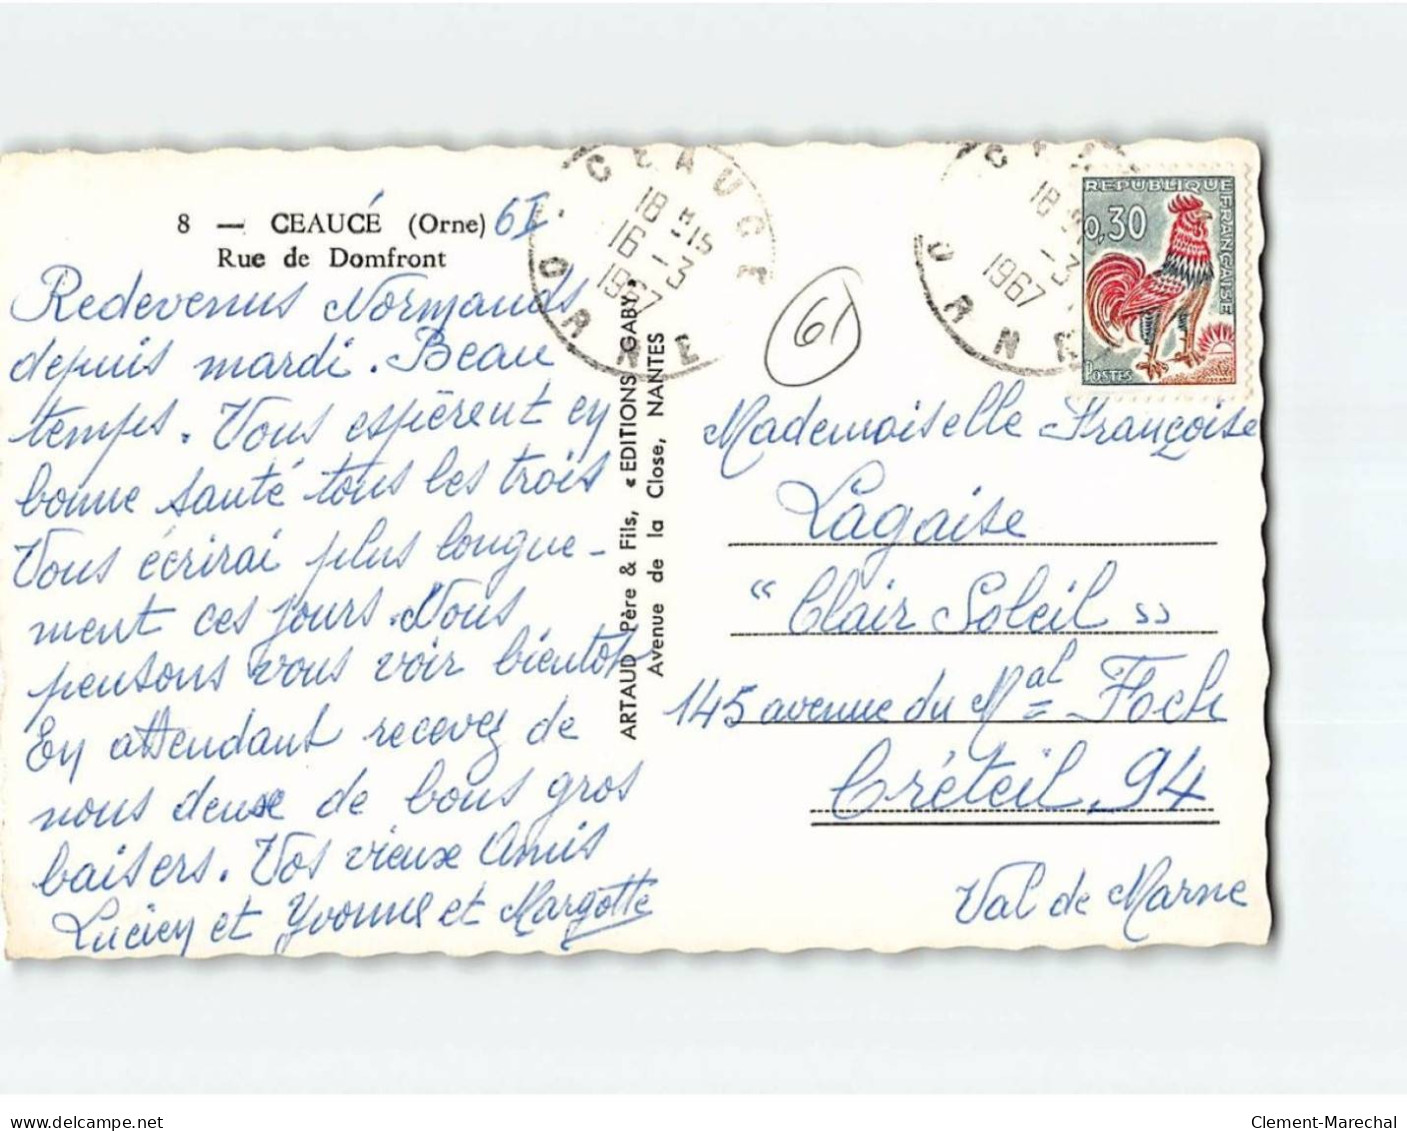 8 — CEAUCÉ (Orne) 61
Rue de Domfront
Redevenus Normands
depuis mardi. Beau
temps. Vous espèrent en
bonne santé tous les trois
Vous écrirai plus longue-
ment ces jours. Nous
pensons vous voir bientôt
En attendant recevez de
nous deux de bons gros
baisers. Vos vieux Amis
Lucien et Yvonne et Margotte
ARTAUD Père & Fils, « EDITIONS GABY »
Avenue de la Close, NANTES
CEAUCE
18 H 15
16 -3
1967
ORNE
61
CE
18 H
-3
1967
ORNE
REPUBLIQUE FRANÇAISE
0,30
POSTES
Mademoiselle Françoise
Lagaise
"Clair Soleil"
145 avenue du Mal Foch
Créteil, 94
Val de Marne
delcampe.net
Clement-Marechal